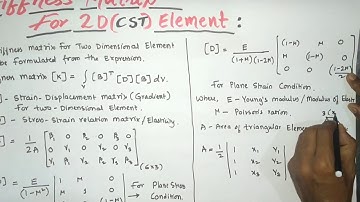 Stiffness Matrix
For 2D (CST) Element :
Stiffness matrix for Two Dimensional Element
be formulated from the Expression.
matrix [K] = ∫ [B]ᵀ [D] [B] dv.
- Strain-Displacement matrix (Gradient)
for two-dimensional Element.
- Stress-Strain relation matrix /
] = 1/2A [ β₁ 0 β₂ 0 β₃ 0
0 γ₁ 0 γ₂ 0 γ₃
γ₁ β₁ γ₂ β₂ γ₃ β₃ ] (6x3)
] = E/(1-μ²) [ 1 μ 0
μ 1 0
→ For Plane Stress Condition.
[D] = E/(1+μ)(1-2μ) [ (1-μ) μ 0
μ (1-μ) 0
0 0 (1-2μ)/2 ]
For Plane Strain Condition.
where, E - Young's modulus / Modulus of
μ - Poisson's ration.
A - Area of triangular Element
A = 1/2 | 1 x₁ y₁
1 x₂ y₂
1 x₃ y₃ |